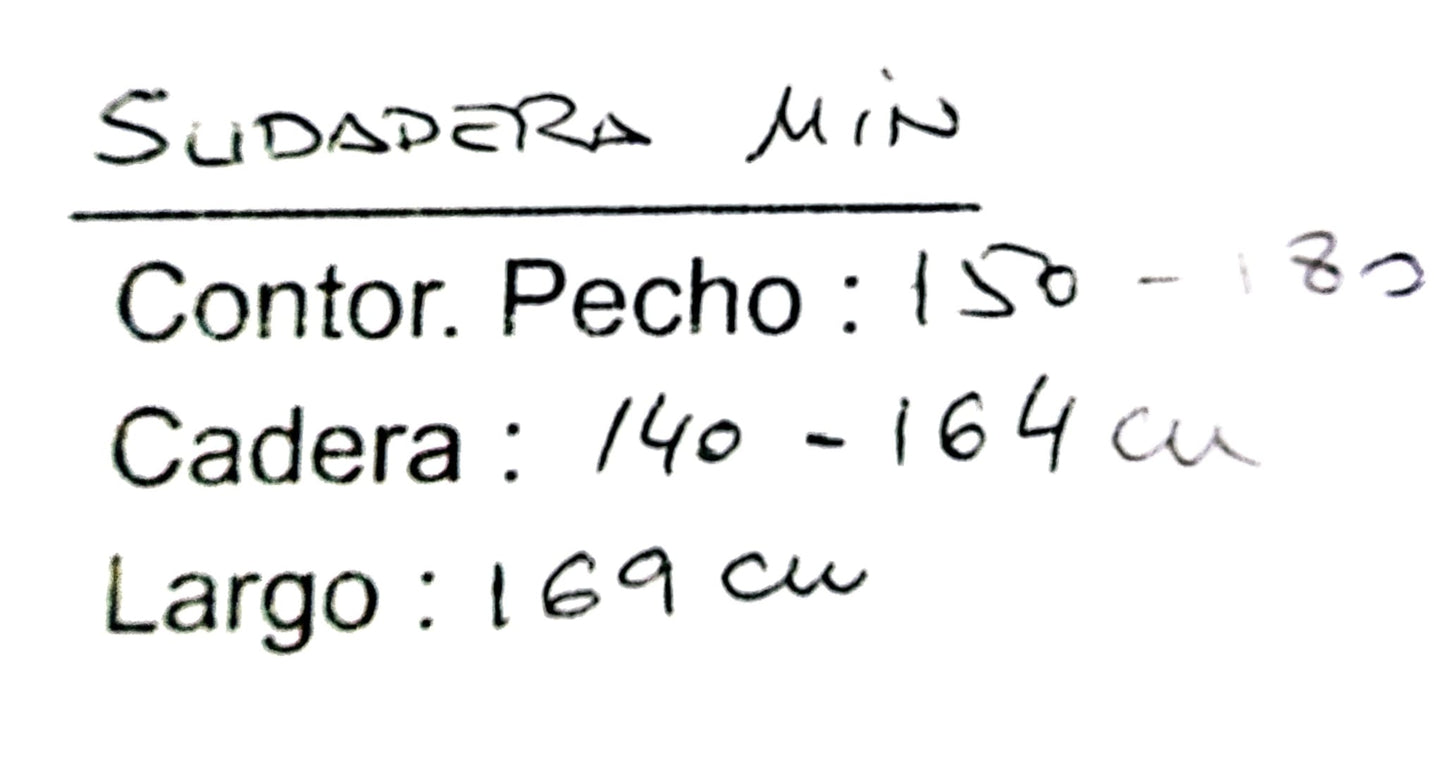 SUDADERA MiN
Contor. Pecho : 150 - 180
Cadera : 140 - 164 cm
Largo : 169 cm